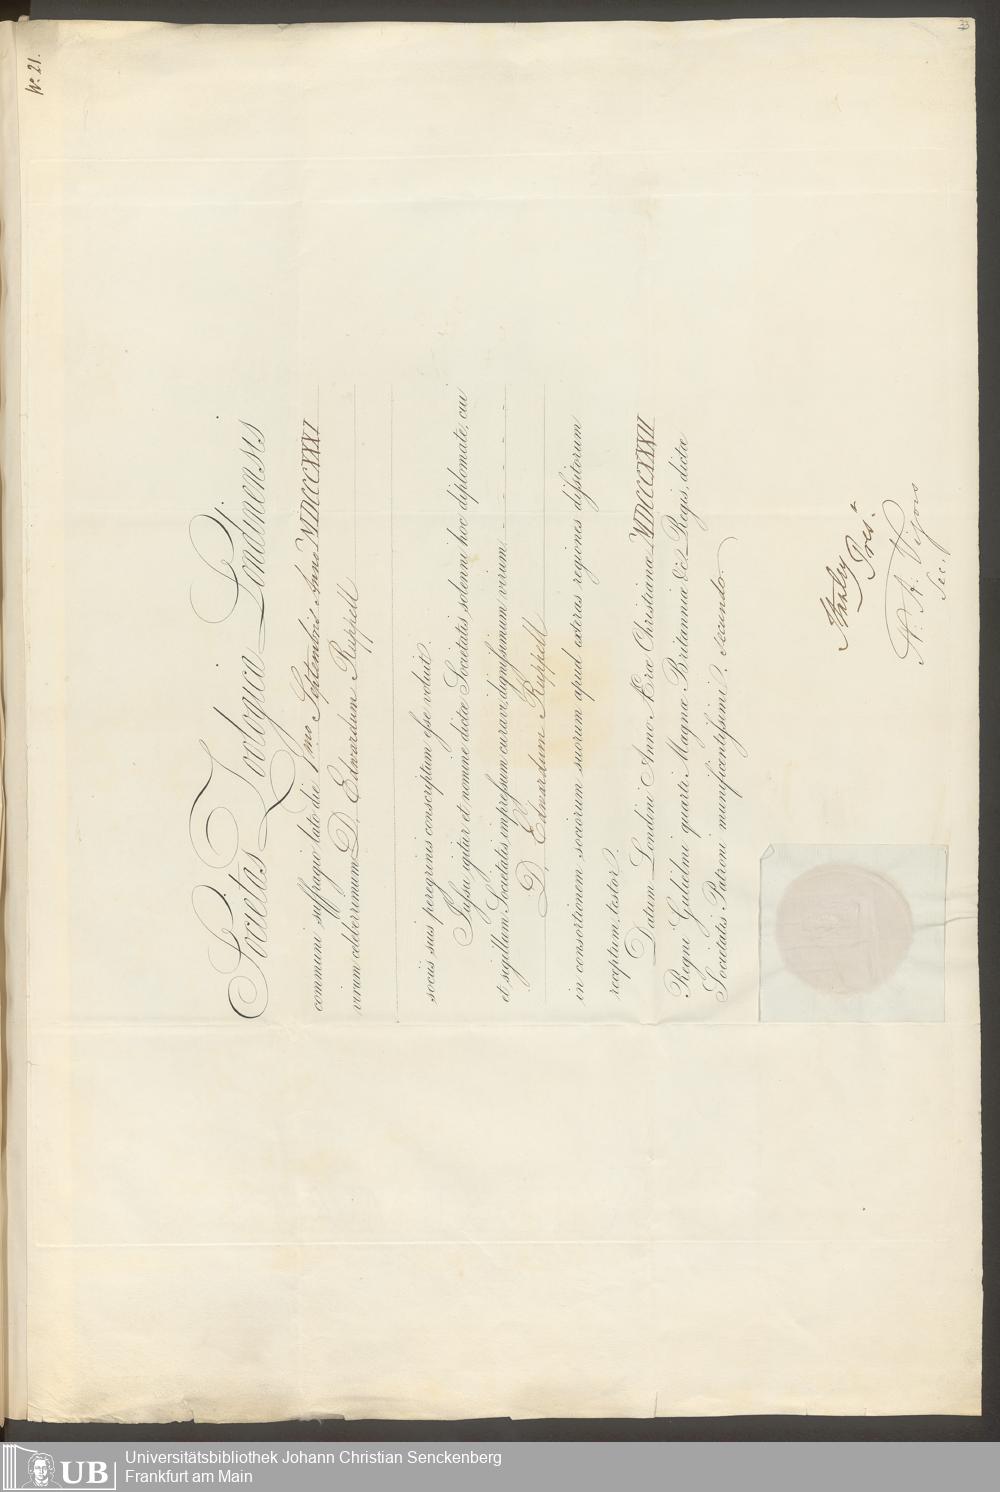 No. 21.
33
Societas Zoologica Londinensis
communi suffragio lato die 1mo Septembris Anno MDCCCXXXI
virum celeberrimum D. Edwardum Ruppell
sociis suis peregrinis conscriptum esse voluit.
Jussu igitur et nomine dictæ Societatis solenni hoc diplomate, cui
et sigillum Societatis impressum curavi, dignissimum virum
D. Edwardum Ruppell
in consortionem sociorum suorum apud exteras regiones dissitorum
receptum, testor.
Datum Londini Anno Æræ Christianæ MDCCCXXXII
Regni Gulielmi quarti Magnæ Britanniæ &c. Regis, dictæ
Societatis Patroni munificentissimi, secundo.
Stanley
Prest.
N. A. Vigors
Sec.
UB
Universitätsbibliothek Johann Christian Senckenberg
Frankfurt am Main